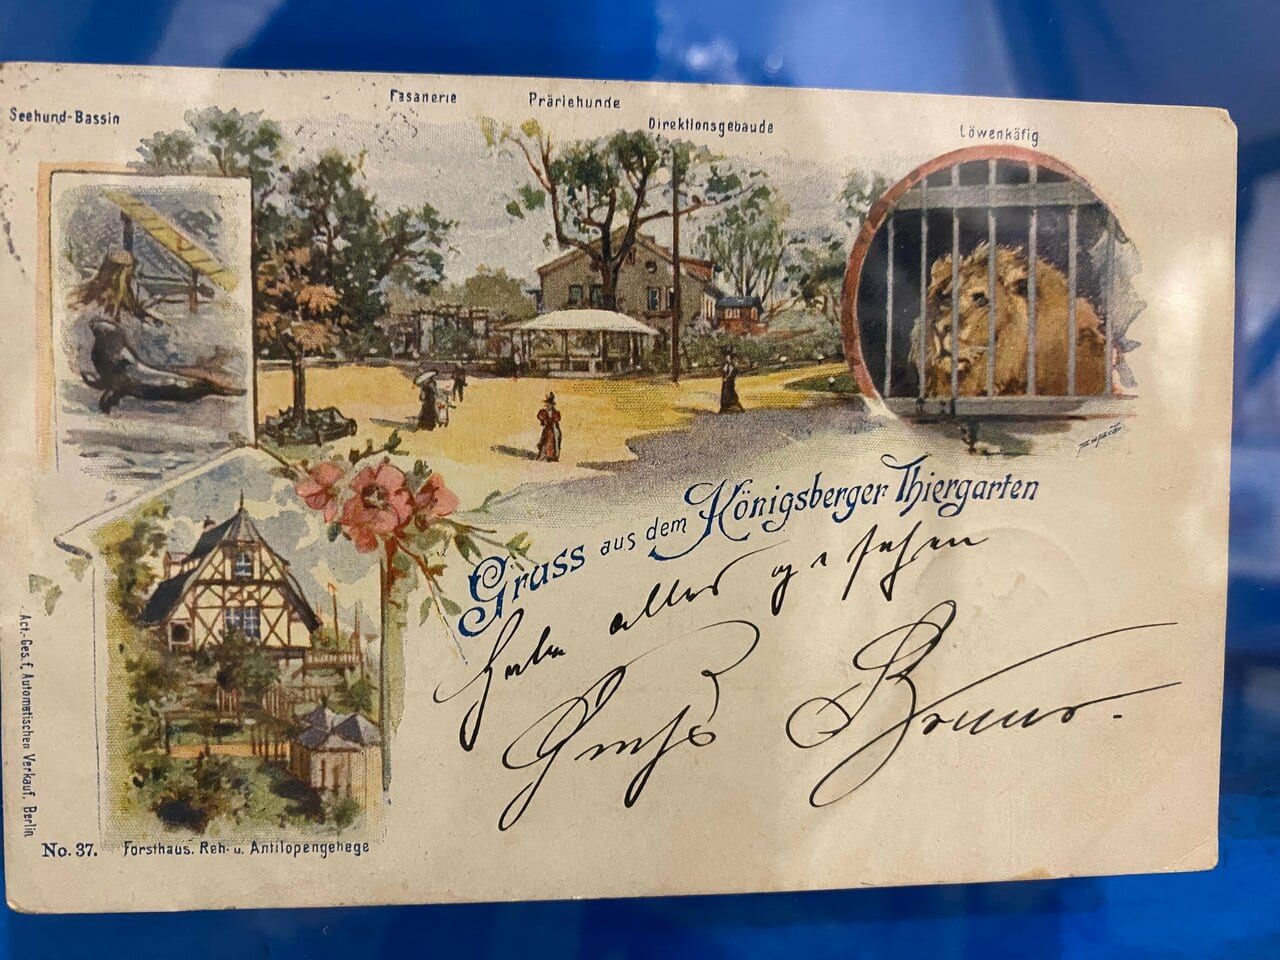 Seehund-Bassin
Fasanerie
Präriehunde
Direktionsgebäude
Löwenkäfig
Gruss aus dem Königsberger Thiergarten
Habe alles gesehen
Gruß Bruno.
Act.-Ges. f. Automatischen Verkauf, Berlin
No. 37.
Forsthaus, Reh- u. Antilopengehege